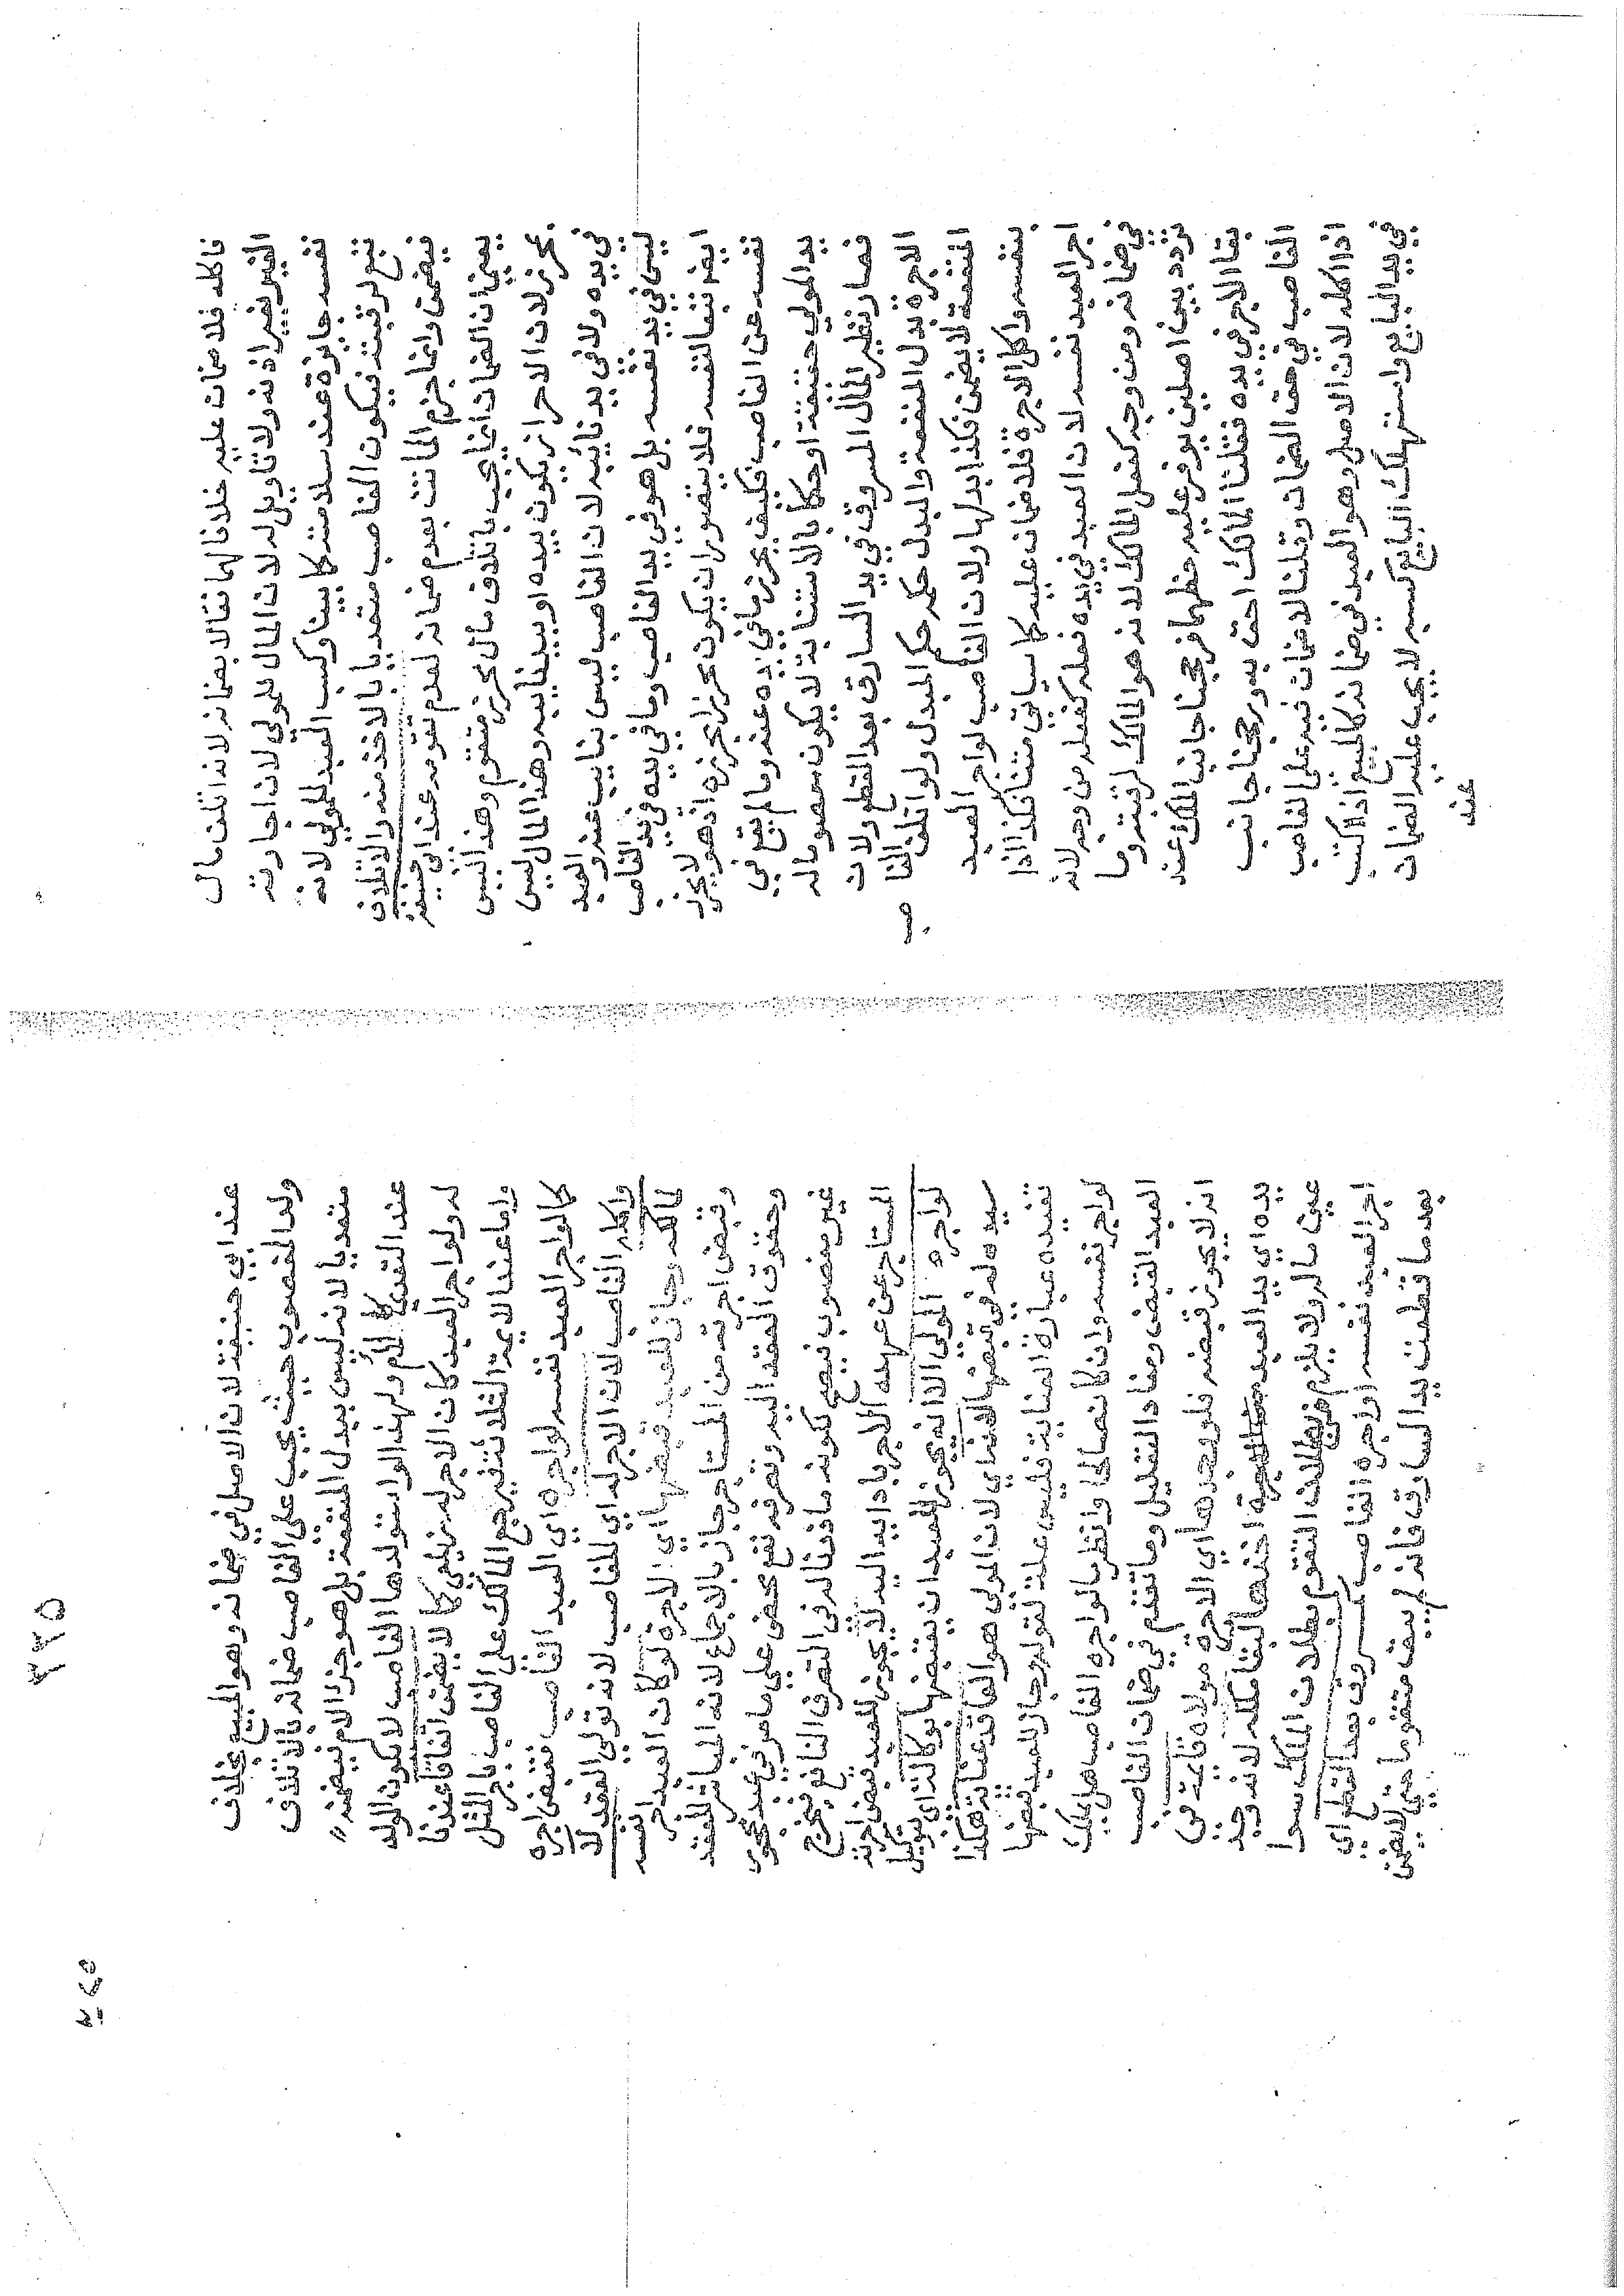 فاكله فلا ضمان عليه خلافا لهما فقالا بضمانه لانه اتلف مال
الغير بغير اذنه ولا تاويل له لان المال للمولي لان اجارته
نفسه جايزة عند سلامته كما بينا وكسب العبد للمولي لانه
يتبع لرقبته فيكون الغاصب متعديا بالاخذ منه والاتلاف
فيضمن وانما جزم الماتن بعدم ضمانه لعدم تقومه عند ابي حنيفة
يعني ان الضمان انما يجب باتلاف مال محرز متقوم وهذا ليس
بمحرز لان الاحراز يكون بيده او بيد نايبه وهذا المال ليس
في يده ولا في يد نائبه لان الغاصب ليس بنايب عنه والعبد
ليس في يد نفسه بل هو في يد الغاصب وما في يده في يد الغاصب
ايضا تبعا لنفسه فلا يتصور ان يكون محرزا بحرزه اذ هو لا يحرز
نفسه عن الغاصب فكيف يحرز ما في يده عنه وما لم يقع في
يد المولي حقيقة او حكما بالاستنابة لا يكون معصوما له
فصار نظير المال المسروق في يد السارق بعد القطع ولان
الاجرة بدل المنفعة والبدل حكمه حكم المبدل ولو اتلف الغاصب
المنفعة لا يضمن فكذا بدلها ولان الغاصب لو اجر العبد
بنفسه واكل الاجرة فلا ضمان عليه كما سياتي متنا فكذا اذا
اجر العبد نفسه لان العبد في يده فعله كفعله من وجه لانه
في ضمانه ومن وجه كفعل المالك لانه هو المالك لرقبته وما
تردد بين اصلين يوفر عليه حظهما فرجحنا جانب الملك عند
بقا الاجر في يده فقلنا المالك احق به ورجحنا جانب
الغاصب في حق الضمان وقلنا لا ضمان فيه علي الغاصب
اذا اكله لان الاصل وهو العبد في ضمانه كالمبيع اذا اكتسب
في يد البايع واستهلك البايع كسبه لا يجب عليه الضمان
عند
٢٣٥
عند ابي حنيفة لان الاصل في ضمانه وهو المبيع بخلاف
ولد المغصوب حيث يجب علي الغاصب ضمانه بالاتلاف
متعديا لانه ليس ببدل المنفعة بل هو جزء الام فيضمنه
عند التعدي كالام ولهذا لو استولدها الغاصب لا يكون الولد
له ولو اجر العبد كان الاجر له زيلعي كما لا يضمن اتفاقا عندنا
واما عند الايمة الثلاثة فيرجع المالك علي الغاصب باجر المثل
كما لو اجر العبد نفسه لو اجره اي العبد الغاصب فقبض اجره
واكله الغاصب لان الاجر له اي للغاصب لانه تولي العقد لا
لمالكه وجاز للعبد قبضها اي الاجرة لو كان العبد اجر نفسه
وقبض اجرته من المستاجر جاز بالاجماع لانه المباشر للعقد
وحقوق العقد اليه وتصرفه نفع محض علي ما مر في عبد محجور
غير مغصوب فيصح لكونه ماذونا له في التصرف النافع فيخرج
المستاجر عن عهدة الاجر باداية اليه لا يجوز للعبد قبض اجرته
لو اجره المولى الا انه يجوز للعبد ان يقبضها بوكالته اي توكيل
سيده له في قبضها لانه اي لان المولى هو العاقد عناية هكذا
تقييده عبارة العناية فليس علة لقوله وجاز للعبد قبضها
لو اجر نفسه وان كان صالحا وانظر بالو اجره الغاصب هل يملك
العبد القبض ومفاد التعليل وما تقدم في ضمان الغاصب
انه لا يجوز قبضه فلو وجدها اي الاجرة مولاه قايمة في
يده اي يد العبد اخذها لبقا ملكه لانه وجد
عين ماله ولا يلزم من بطلان التقوم بطلان الملك سوا
اجر العبد نفسه او اجره الغاصب كمسروق بعد القطع اي
بعد ما قطعت يد السارق فانه لم يبق متقوما حتي لا يضمن